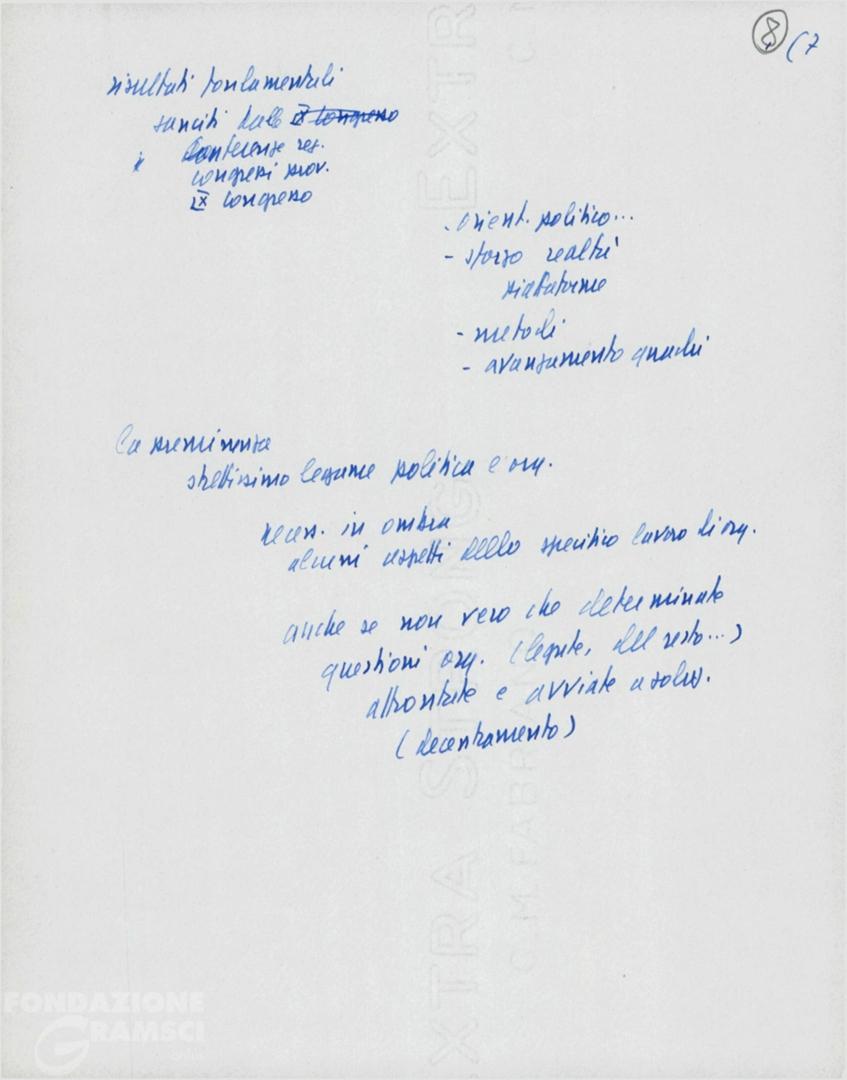 8 (7
risultati fondamentali
sanciti dalle IX Congresso
Conferenze reg.
congressi prov.
IX Congresso
- orient. politico...
- sforzo realtà
piattaforme
- metodi
- avanzamento quadri
la preminenza
strettissimo legame politica e org.
necess. in ombra
alcuni aspetti dello specifico lavoro di org.
anche se non vero che determinate
questioni org. (legate, del resto...)
affrontate e avviate a soluz.
(decentramento)
EXTRA STRONG
G. M. FABRIANO
FONDAZIONE
GRAMSCI